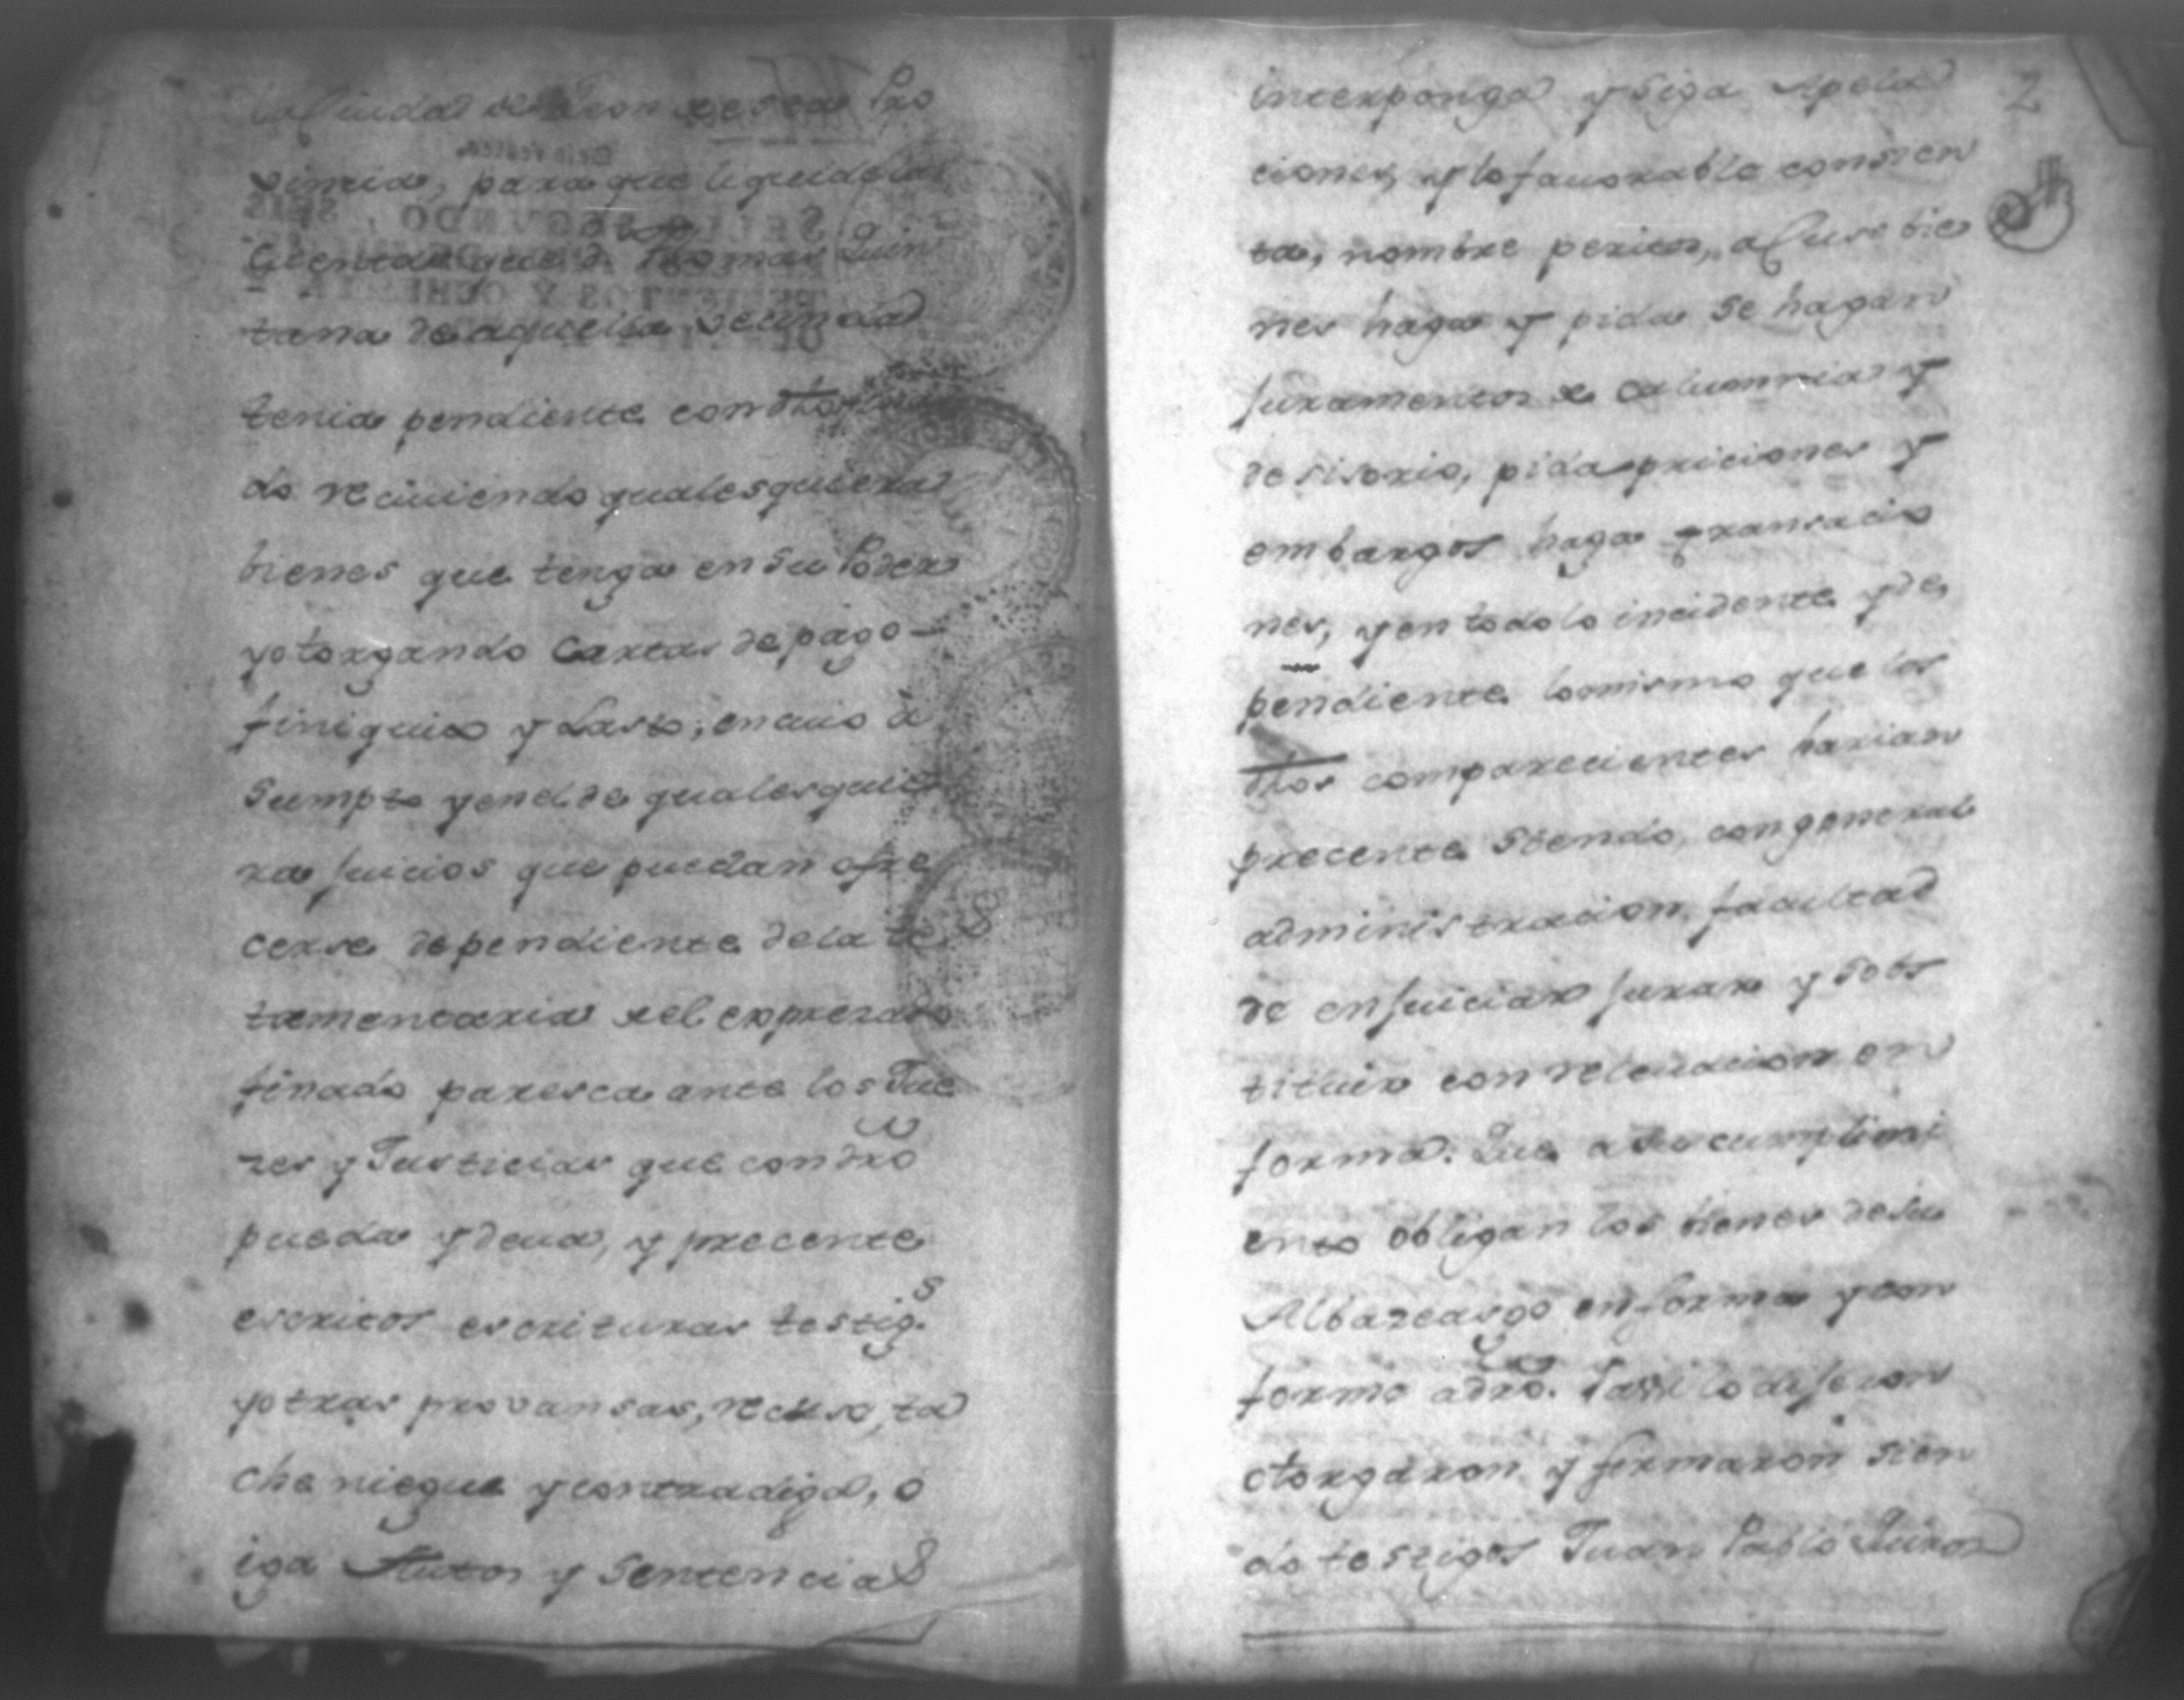 la Ciudad de Leon de esta Pro
vincia, para que liquide las
Cuentas que D. Thomas Quin
tana de aquella vecindad
tenia pendiente con dho fina
do reciuiendo qualesquiera
bienes que tenga en su Poder
y otorgando Cartas de pago
finiquito y Lasto; en cuio à
sumpto y en el de qualesquie
ra Juicios que puedan ofre
cerse dependiente de la tes
tamentaria del expresado
finado paresca ante los Jue
zes y Justicias que con dro
pueda y deua, y precente
escritos escrituras testig.s
y otras provansas, recuse, ta
che niegue y contradiga, o
iga Autos y Sentencias
2
interponga y siga Apela
ciones, y lo fauorable consien
ta, nombre peritos, a Cuse bie
nes haga y pida se hagan
Juramentos de calumnia y
desisorio, pida priciones y
embargos haga transacio
nes, y en todo lo incidente y de
pendiente lo mismo que los
dhos comparecientes harian
precente siendo, con general
administracion facultad
de enJuiciar Jurar y sobs
tituir con releuacion en
forma. Que a su cumplimi
ento obligan los bienes de su
Albaceasgo en forma y con
forme a dro. Y assi lo dijeron
otorgaron y firmaron sien
do testigos Juan Pablo Quiros